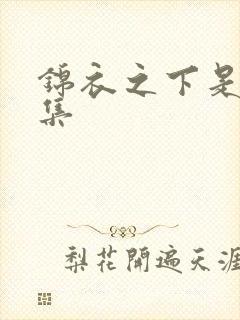 錦衣之下是
集
梨花開遍天涯